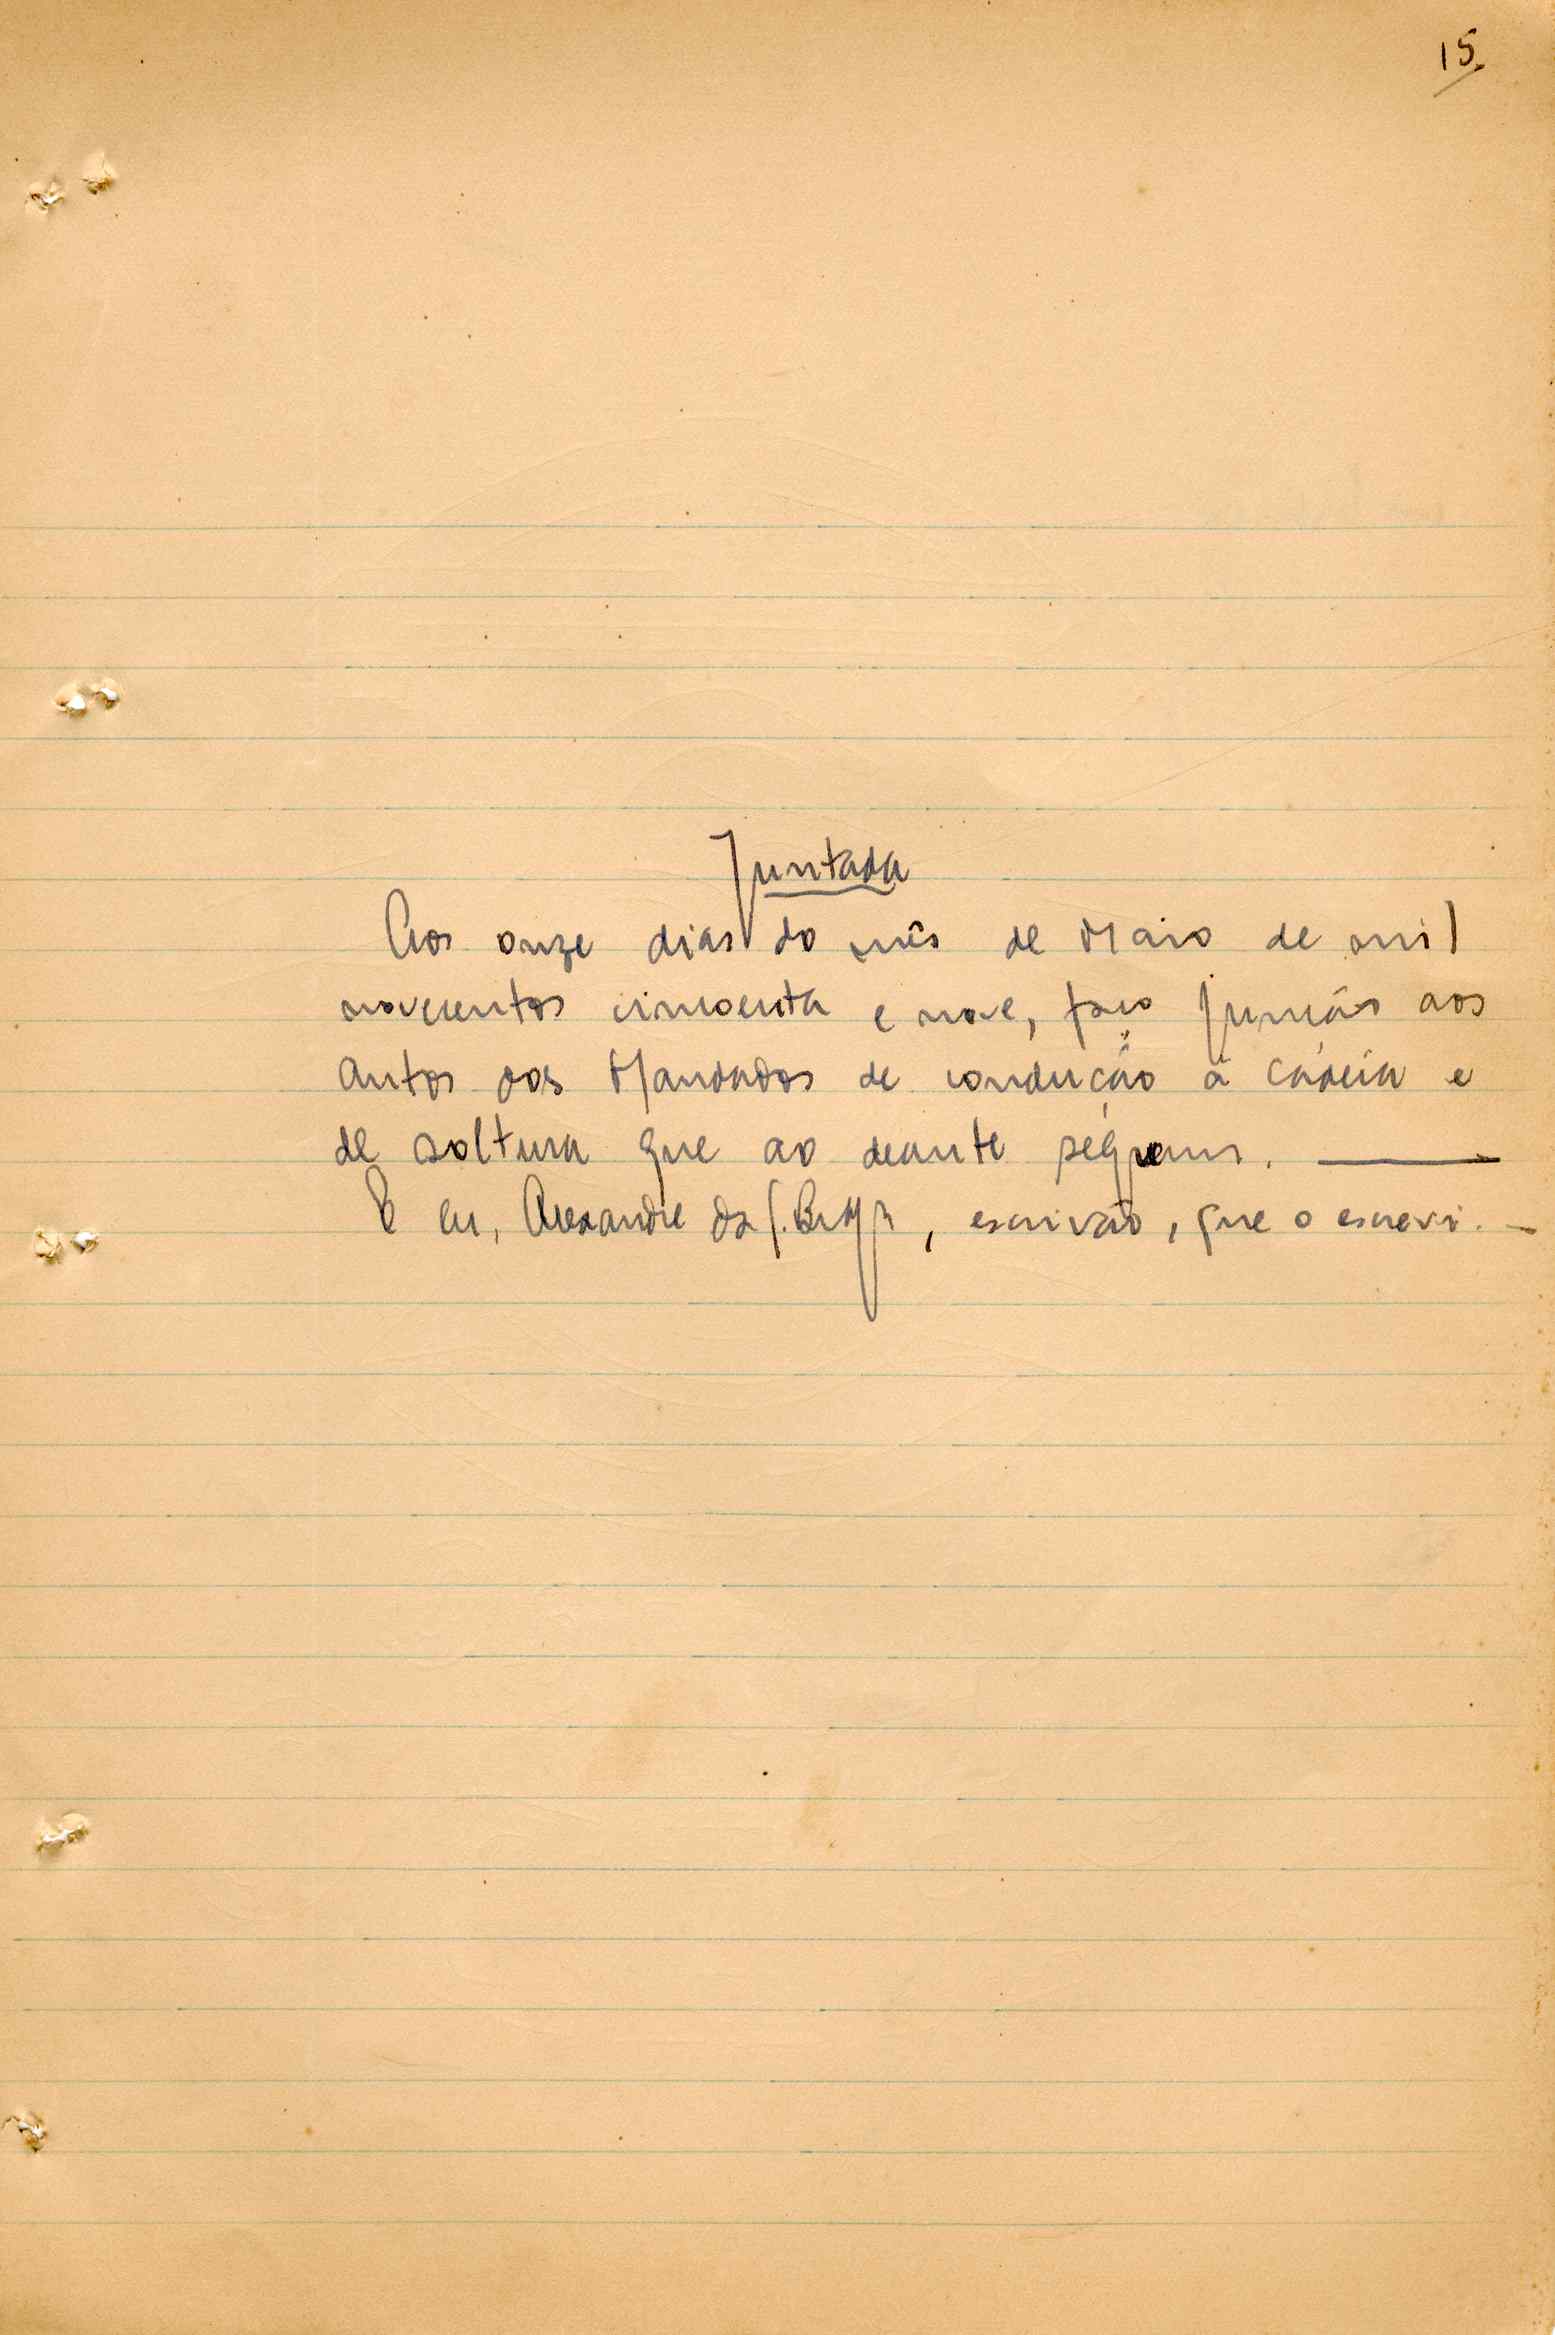 15
Juntada
Aos onze dias do mês de Maio de mil
novecentos cincoenta e nove, faço junção aos
autos dos Mandados de condução à cadeia e
de soltura que ao deante seguem.
E eu, Alexandre da S., escrivão, que o escrevi.